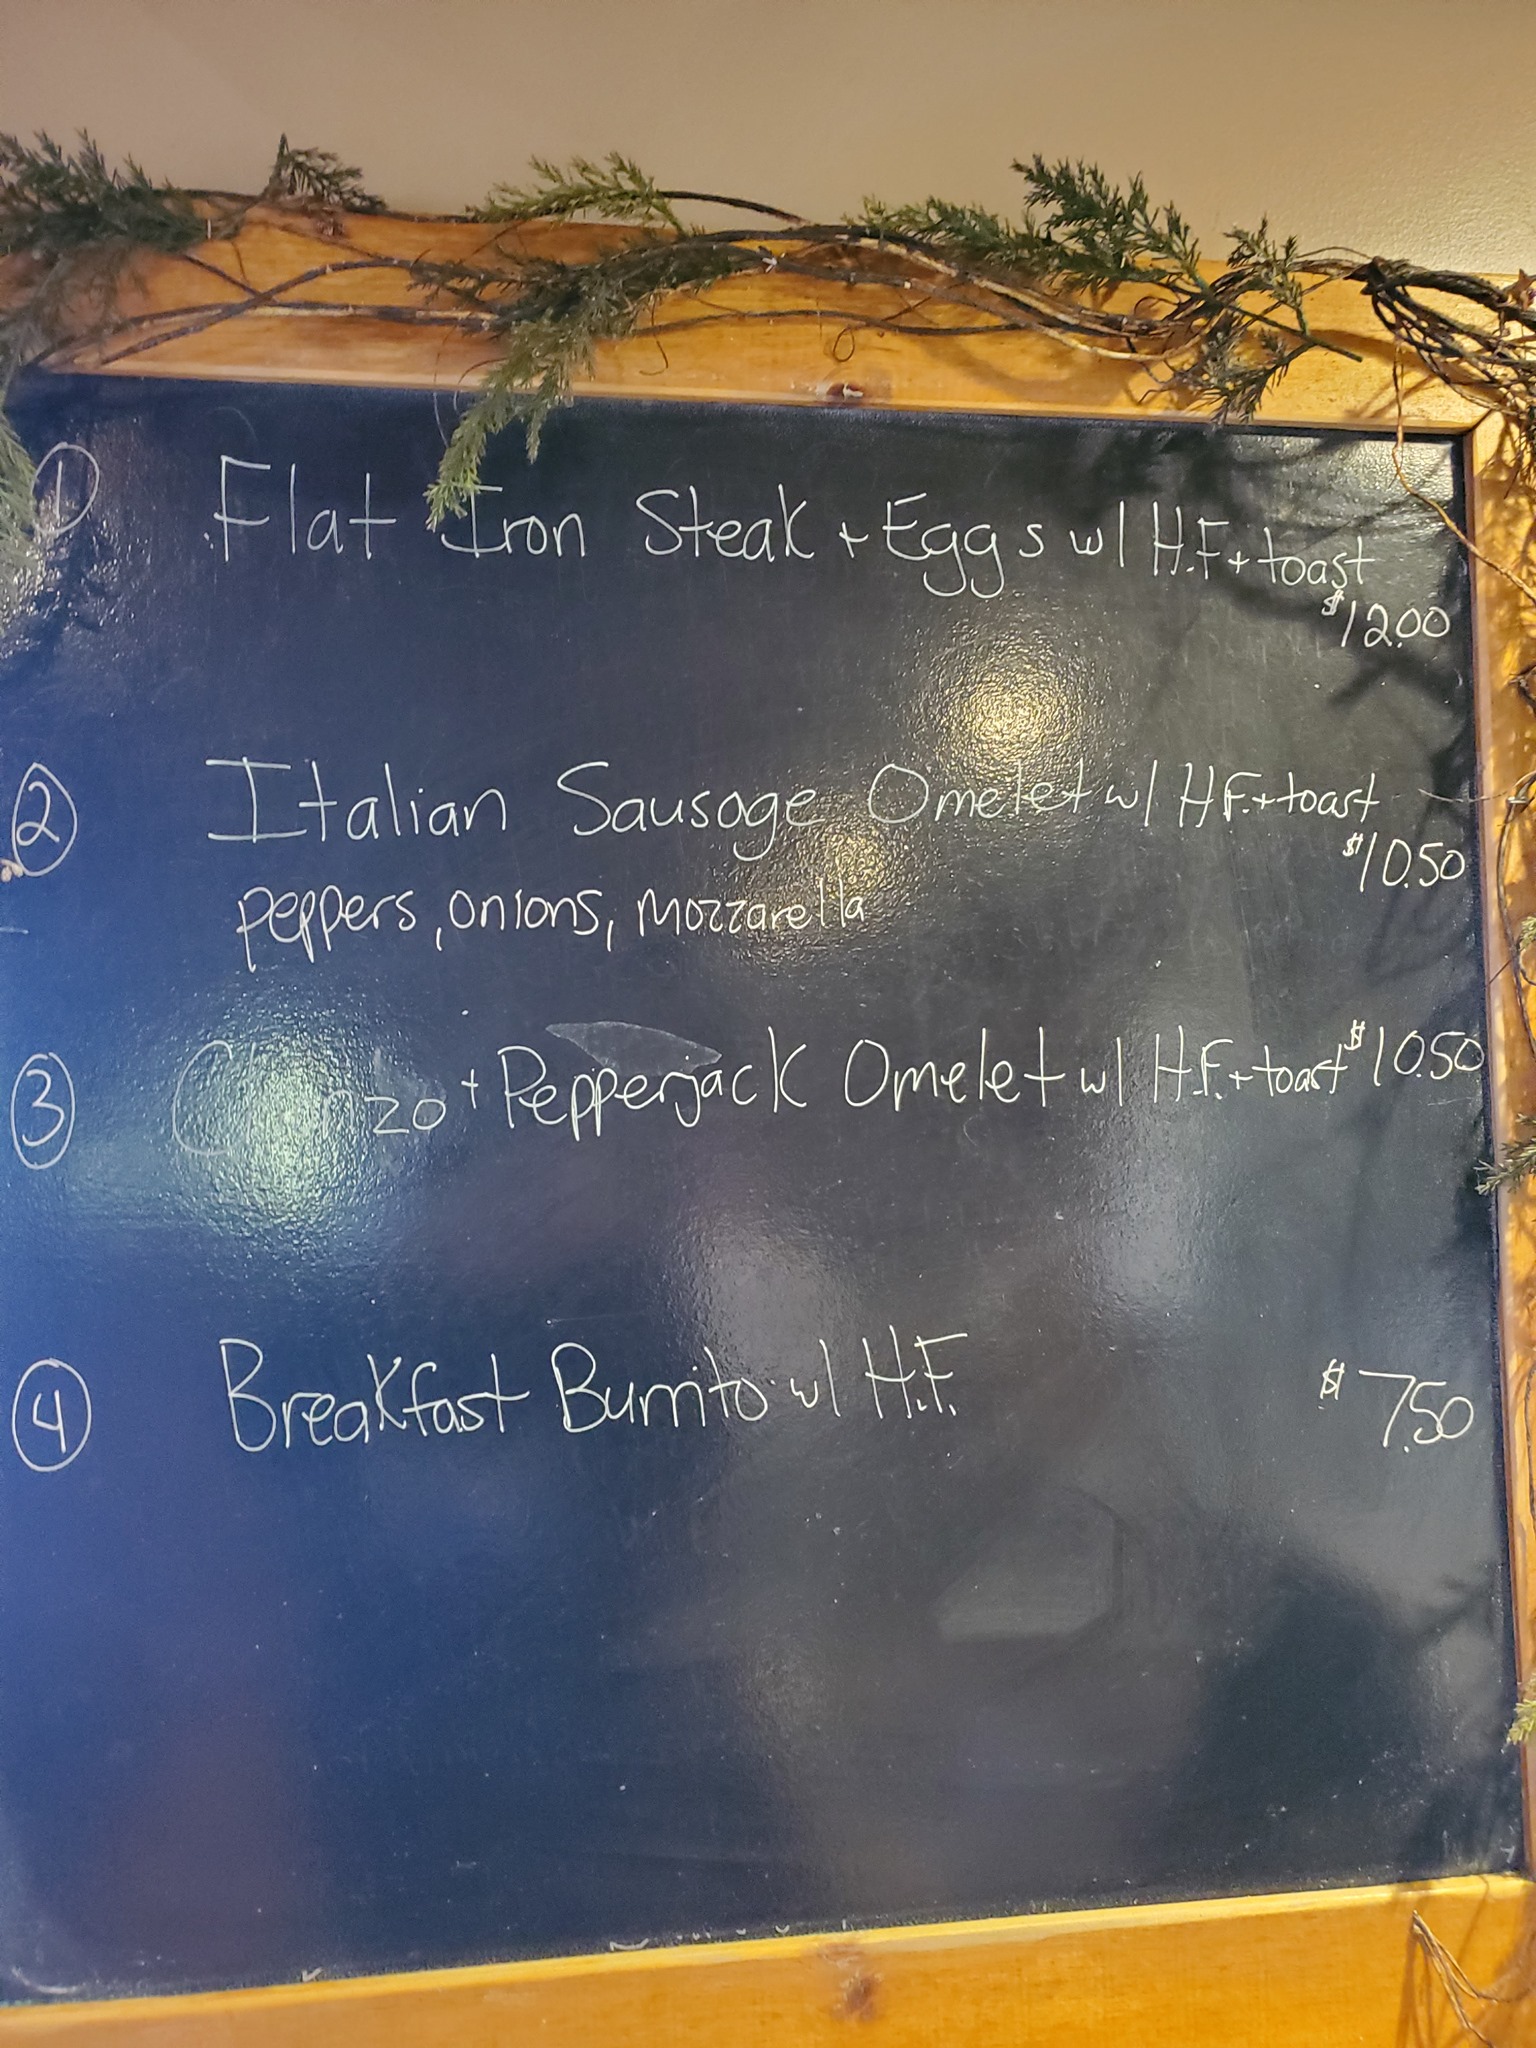 1 Flat Iron Steak + Eggs w/ H.F + toast
$12.00
2 Italian Sausage Omelet w/ H.F. + toast
$10.50
peppers, onions, mozzarella
3 Chorizo + Pepperjack Omelet w/ H.F. + toast $10.50
4 Breakfast Burrito w/ H.F. $7.50